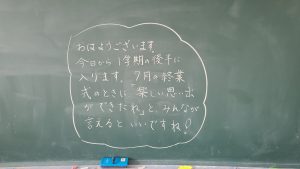 おはようございます。
今日から1学期の後半に
入ります。7月の終業
式のときに「楽しい思い出
ができたね」と、みんなが
言えるといいですね!